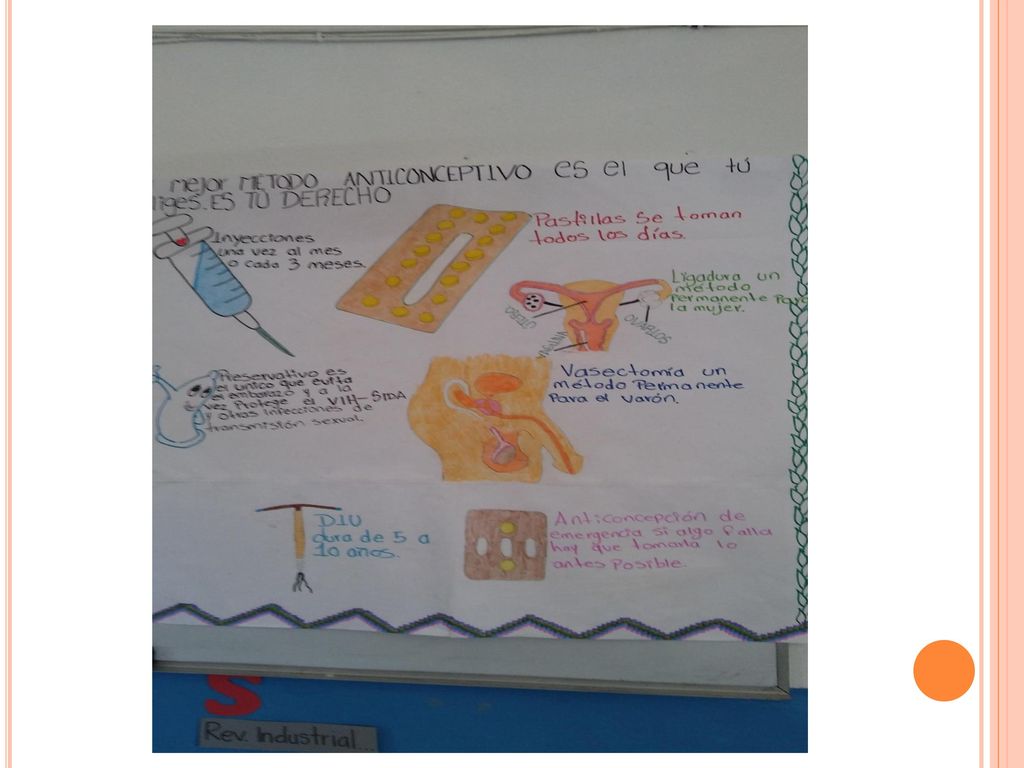 mejor MÉTODO ANTICONCEPTIVO es el que tú
liges. ES TU DERECHO
Inyecciones
una vez al mes
o cada 3 meses.
Pastillas se toman
todos los días.
Ligadura un
método
Permanente Para
la mujer.
UTERO
VAGINA
OVARIOS
Preservativo es
el unico que evita
el embarazo y a la
vez Protege el VIH-SIDA
y otras infecciones de
transmisión sexual.
Vasectomía un
método Permanente
Para el varón.
DIU
dura de 5 a
10 años.
Anticoncepción de
emergencia si algo falla
hay que tomarla lo
antes Posible.
S
Rev. Industrial...